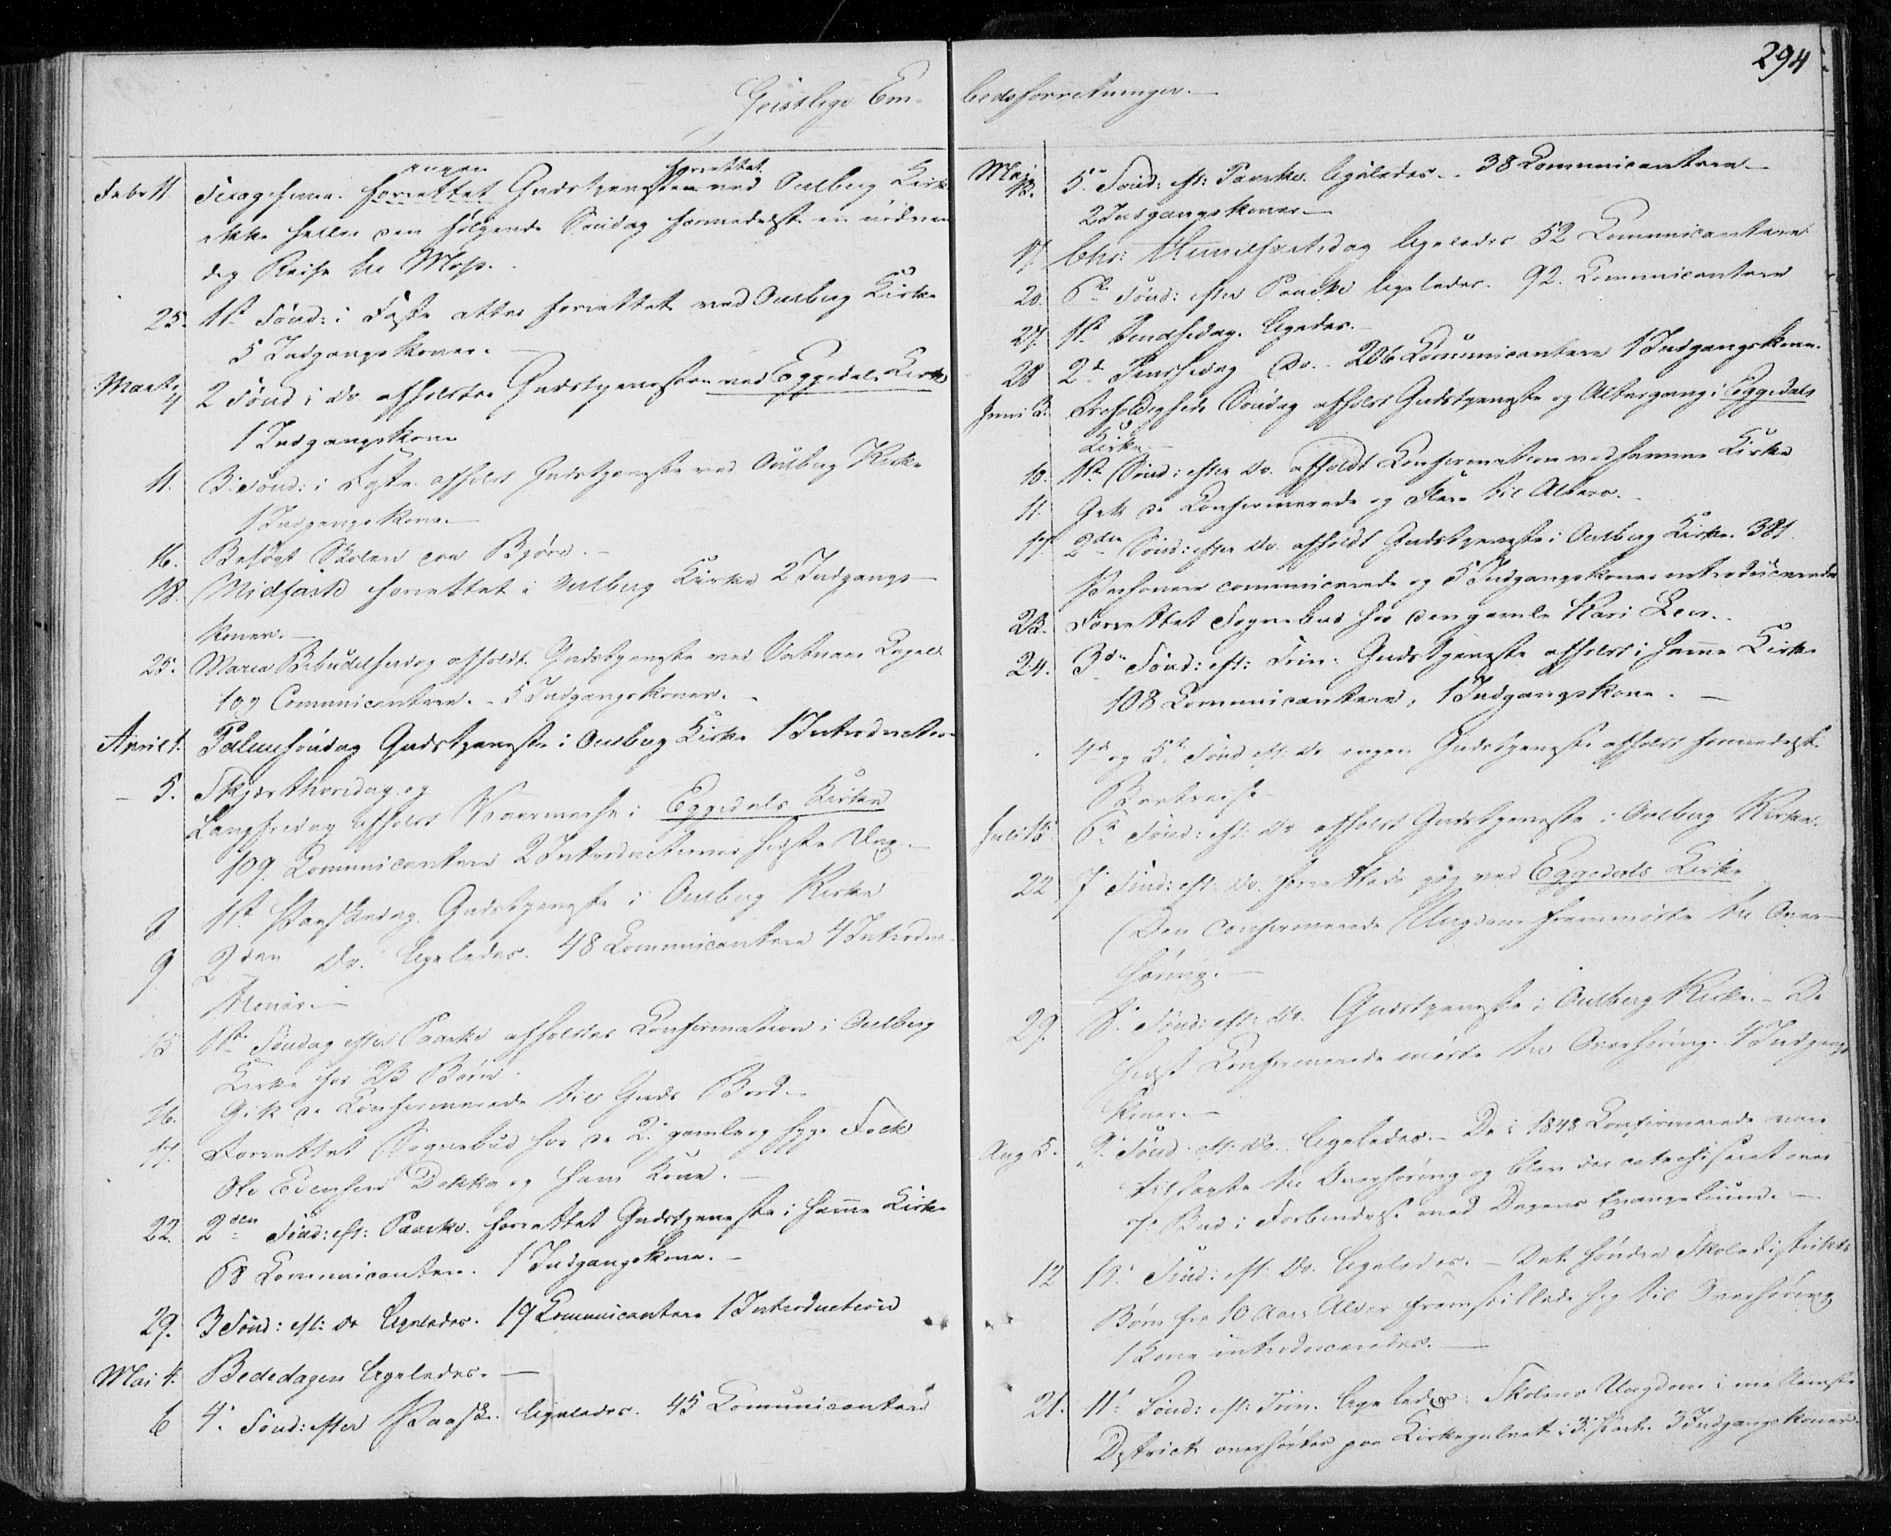 294
Geistlige Em-
bedsforretninger.
Febr 11. ingen Gudstjeneste forrettet ved Oulberg Kirke
ikke heller den følgende Søndag formedelst en nødven
dig Reise til Moss.
25. 1ste Sønd: i Faste atter forrettet ved Oulberg Kirke
5 Indgangskoner.
Marts 4 2 Sønd i do afholdtes Gudstjenesten ved Eggedals Kirke
1 Indgangskone
11. 3. Sønd: i Faste afholdt Gudstjeneste ved Oulberg Kirke
1 Indgangskone
16. Besøgt Skolen paa Bjøre.
18. Midfaste forrettet i Oulberg Kirke 2 Indgangs-
koner.
25. Maria Bebudelsesdag afholdt Gudstjeneste ved Vatnaas Capel
109 Communicantere. - 5 Indgangskoner.
April 1. Palmesøndag Gudstjeneste i Oulberg Kirke 1 Introduction
- 5. Skjærthorsdag og
Langfredag afholdt i Eggedals Kirke
109. Communicantere 2 Introductioner sidste Dag.
8 1ste Paaskedag. Gudstjeneste i Oulberg Kirke
9 2den Do. ligeledes. 48 Communicantere 4 Introduc-
tioner.
15 1ste Søndag efter Paaske afholdtes Confirmation i Oulberg
Kirke for 23 Børn.
16. Gik de Confirmerede til Guds Bord.
17. Forrettet Sognebud hos de 2 gamle og syge Folk
Ole Evensen Dokka og hans Kone.
22. 2den Sønd: eft: Paaske. forrettet Gudstjeneste i samme Kirke
68 Communicanter. 1 Indgangskone.
29. 3 Sønd: eft: do ligeledes. 19 Communicantere 1 Introduction
Mai 4. Bededagen ligeledes.
6 4. Sønd: efter Paaske. ligeledes. 45 Communicantere
Maj 13. 5te Sønd: eft: Paaske. ligeledes. 38 Communicantere
2 Indgangskoner
17. Chr: Himmelfartsdag ligeledes 52 Communicantere
20. 6te Sønd: efter Paaske ligeledes. 92. Communicantere
27. 1ste Pindsedag.
28 2d Pindsedag Do. 206 Communicantere 1 Indgangskone.
Juni 3. Trefoldigheds Søndag afholdt Gudstjeneste og Altergang i Eggedals
Kirke
10. 1ste Sønd: efter do. afholdt Confirmation ved samme Kirke
11. Gik de Confirmerede og Flere til Alters.
17 2den Sønd: efter do afholdt Gudstjeneste i Oulberg Kirke. 381
Personer communicerede og 5 Indgangskoner introduceredes
23. Forrettet Sognebud hos den gamle Kari
24. 3die Sønd: eft: Trin: Gudstjeneste afholdt i samme Kirke
108 Communicantere, 1 Indgangskone.
4de og 5te Sønd eft: do ingen Gudstjeneste afholdt formedelst
Bortreise
Juli 15 6te Sønd: eft: do afholdt Gudstjeneste i Oulberg Kirke.
22 7 Sønd: eft: do. ved Eggedals Kirke
(Den confirmerede Ungdom fremmødte til Over-
høring.
29. 8. Sønd: eft: do. Gudstjeneste i Oulberg Kirke. - De
sidst Confirmerede mødte til Overhøring. 4 Indgangs
koner.
Aug 5. 9. Sønd: eft: do. ligeledes. De i 1848 Confirmerede vare
tilsagte til Overhøring og blev der catechiseret over
7. Bud i Forbindelse med Dagens Evangelium.
12 10. Sønd: eft: do. ligeledes. - Det søndre Skoledistrikts
Børn fra 10 Aars Alder fremstillede sig til Overhøring
1 Kone introduceredes.
21. 11. Sønd: eft: Trin. ligeledes. Skolens Ungdom i mellemste
District overhørtes paa Kirkegulvet i 3. Part. 3 Indgangskoner